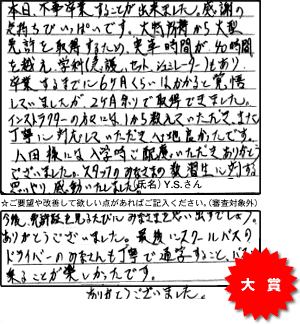 本日、無事卒業することが出来ました。感謝の
気持ちでいっぱいです。大特所持から大型
免許を取得するため、実車時間が40時間
を越え、学科(応護、セット、シュミレーター)もあり、
卒業するまでに6ヶ月くらいはかかると覚悟
していましたが、2ヶ月余りで取得できました。
インストラクターの方々には1から教えていただき、また
丁寧に対応していただき心地良かったです。
八田様には入学時ご配慮いただきありがとう
ございました。スタッフのみなさまの教習生に対する
思いやり、感動いたしました。(氏名)Y.S.さん
☆ご要望や改善して欲しい点があればご記入ください。(審査対象外)
今後、免許証を見るたびにみなさまを思い出すでしょう。
ありがとうございました。最後にスクールバスの
ドライバーのみなさんも丁寧で通学すること、バスに
乗ることが楽しかったです。
ありがとうございました。
大賞